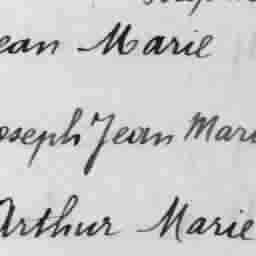 ean Marie
oseph Jean Mari
Arthur Marie